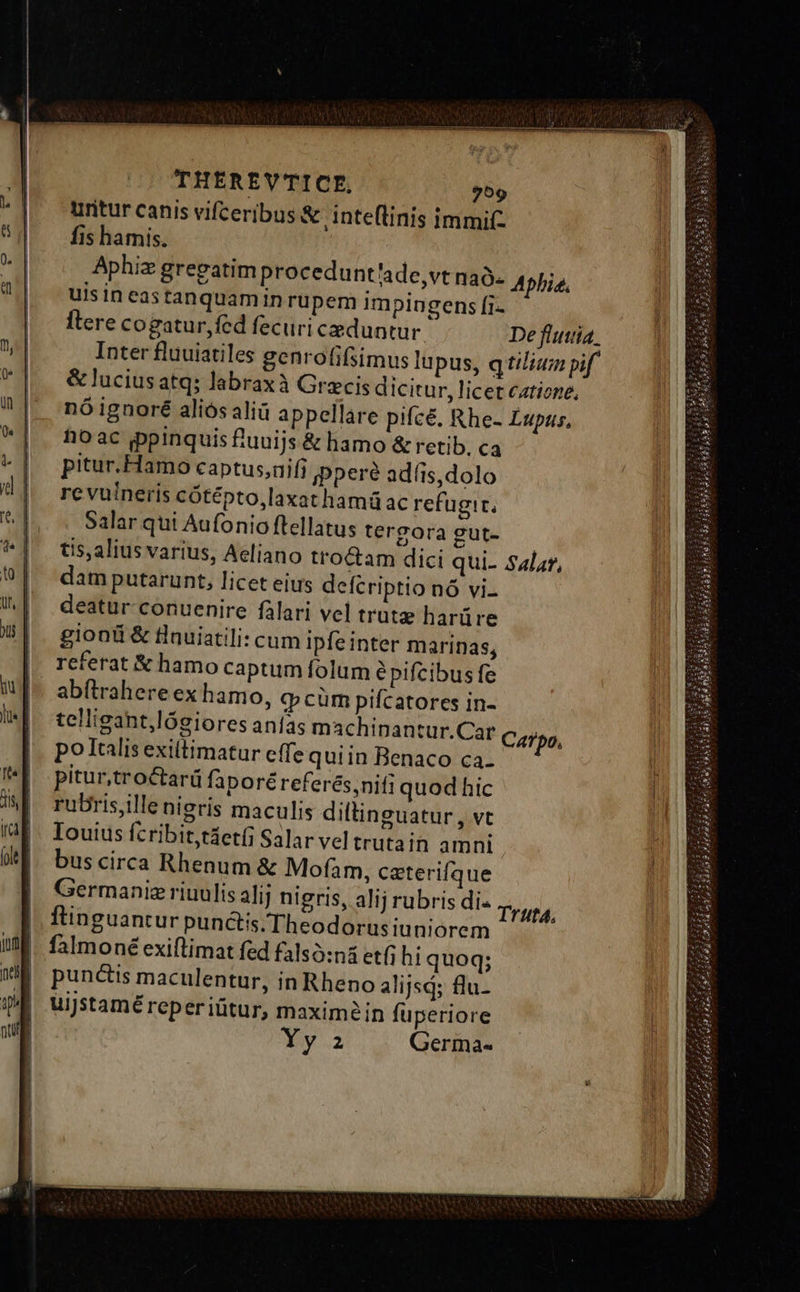 THEREVTICE, 709
uritur canis viſceribus & inteſtinis immiſ-
ſis hamis.
Aphiæ gregatim procedunt ſade, vt naō- Aphiæ.
uis in eas tanquam in rupem impingens ſi-
ſtere cogatur, ſed ſecuri cæduntur De fluuia-
Inter fluuiatiles genroſiſsimus lupus, q tilium piſ
& lucius atq; labrax à Græcis dicitur, licet catione.
nō ignorē aliōs aliū appellare piſcē. Rhe- Lupus.
no ac ꝓpinquis fluuijs & hamo & retib. ca
pitur. Hamo captus, niſi ꝓperè adſis, dolo
re vulneris cōtēpto, laxat hamū ac refugit.
Salar qui Auſonio ſtellatus tergora gut-
tis, alius varius, Aeliano troctam dici qui- Salar.
dam putarunt, licet eius deſcriptio nō vi-
deatur conuenire ſalari vel trutæ harū re
gionū & fluuiatili: cum ipſe inter marinas,
referat & hamo captum ſolum è piſcibus ſe
abſtrahere ex hamo, ꝙ cùm piſcatores in-
telligant, lōgiores anſas machinantur. Car Carpo.
po Italis exiſtimatur eſſe qui in Benaco ca-
pitur, troctarū ſaporē referēs, niſi quod hic
rubris, ille nigris maculis diſtinguatur, vt
Iouius ſcribit, tāetſi Salar vel truta in amni
bus circa Rhenum & Moſam, cæteriſque
Germaniæ riuulis alij nigris, alij rubris di- Truta.
ſtinguantur punctis. Theodorus iuniorem
ſalmonē exiſtimat ſed falsò: nā etſi hi quoq;
punctis maculentur, in Rheno alijsq; flu-
uijs tamē reperiūtur, maximè in ſuperiore
Yy 2 Germa-